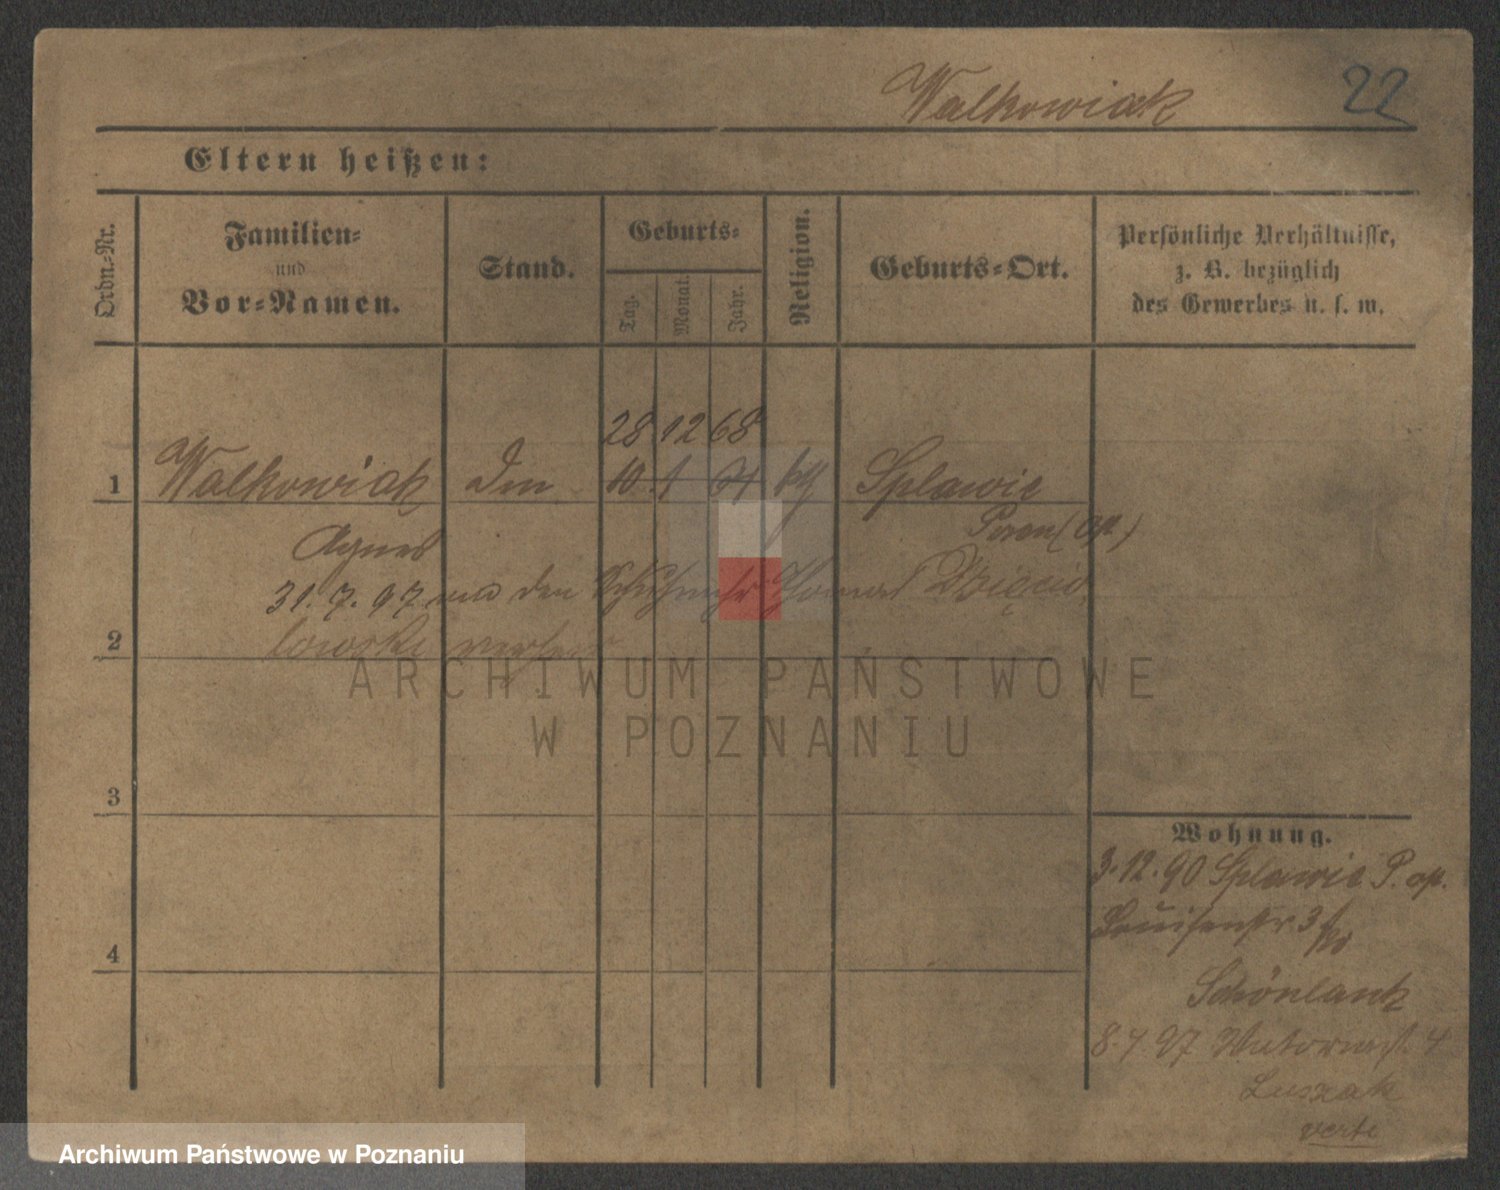 Walkowiak 22
Eltern heißen:
Ordn.-Nr.
Familien-
und
Vor-Namen.
Stand.
Geburts-
Tag.
Monat.
Jahr.
Religion.
Geburts-Ort.
Persönliche Verhältnisse,
z. B. bezüglich
des Gewerbes u. s. w.
28 12 68
1 Walkowiak 10 1 kth Splawie
Agnes Posen (Op.)
31. 7. 97 den
2 lowski
ARCHIWUM PAŃSTWOWE
W POZNANIU
3
Wohnung.
3.12.90 Splawie P. op.
Louisenstr 3
4
Schönlank
8.7.97 4
Luszak
verte
Archiwum Państwowe w Poznaniu